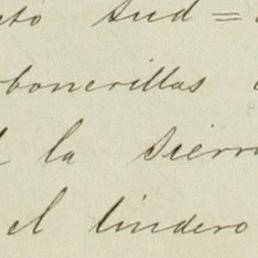 Sud =
bonerillas
la Sierra
el lindero